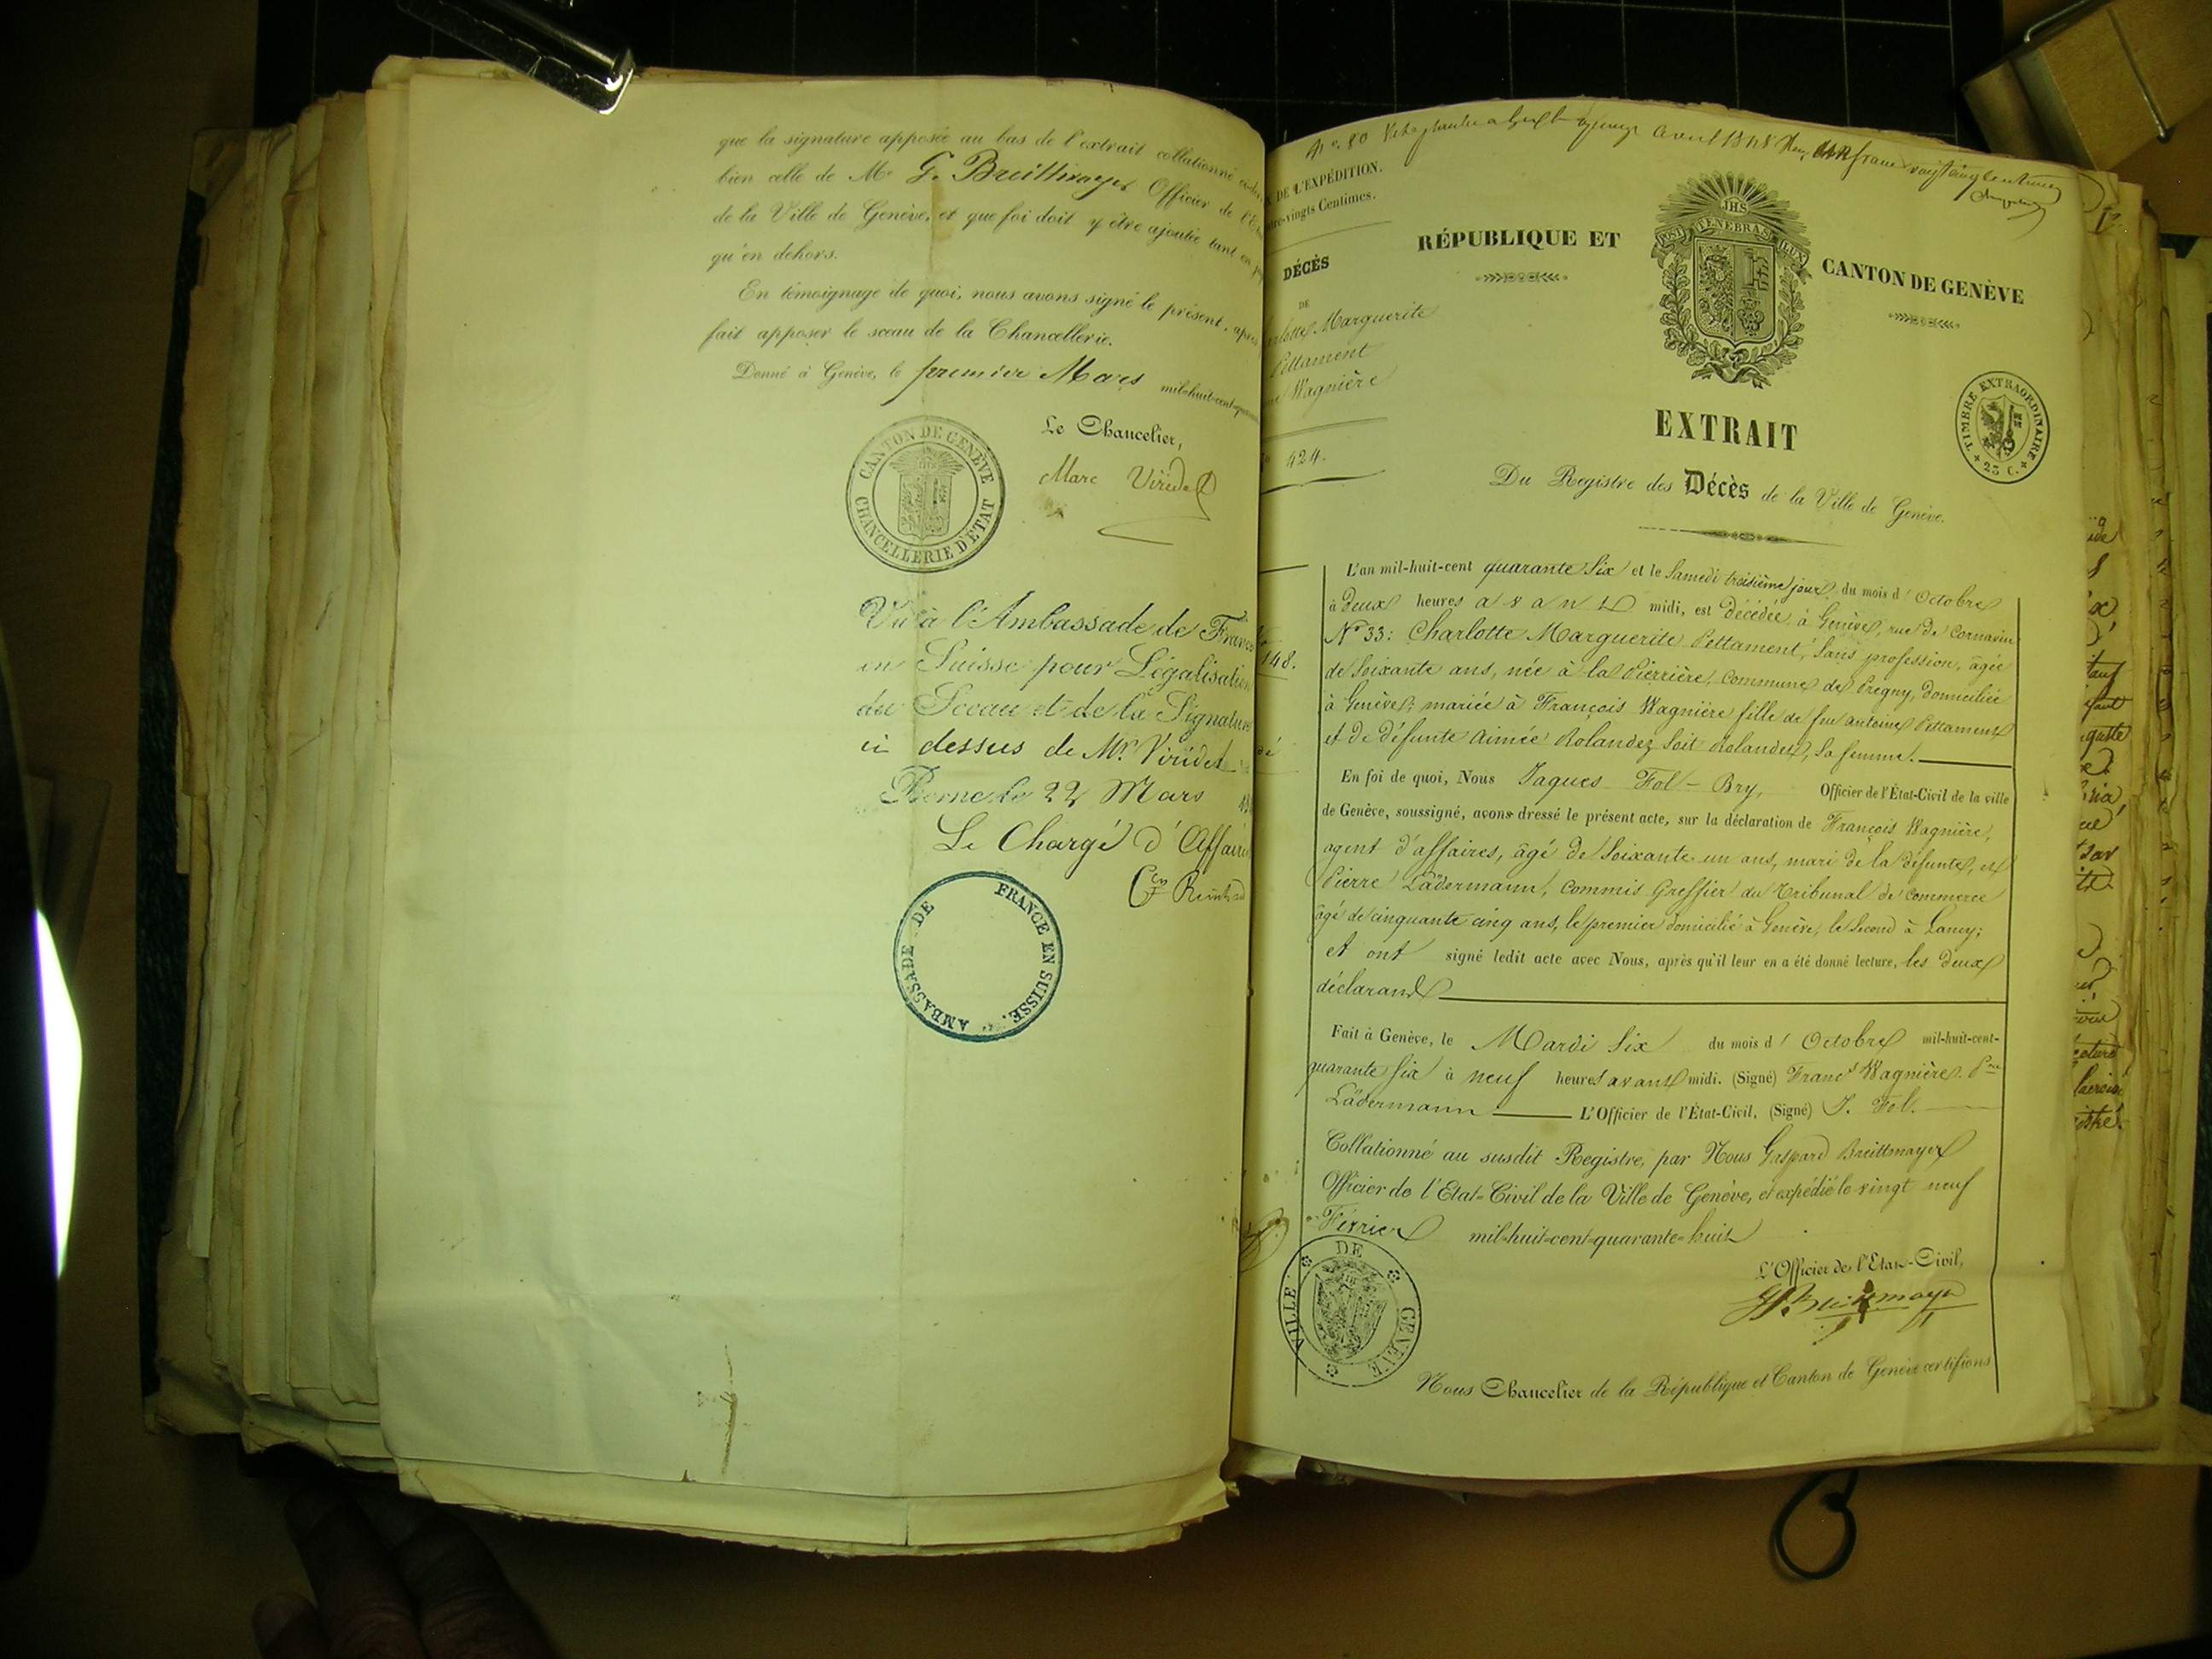 que la signature apposée au bas de l'extrait collationné
bien celle de Mr G. Breittmayer Officier de l'
de la Ville de Genève, et que foi doit y être ajoutée tant en
qu'en dehors.
En témoignage de quoi, nous avons signé le présent, après
fait apposer le sceau de la Chancellerie.
Donné à Genève, le premier Mars mil-huit-cent-
Le Chancelier,
Marc Viridet
CANTON DE GENÈVE
CHANCELLERIE D'ETAT
Vu à l'Ambassade de France
en Suisse pour Légalisation
du Sceau et de la Signature
ci dessus de Mr. Viridet
Berne le 22 Mars
Le Chargé d'Affaires
AMBASSADE DE FRANCE EN SUISSE.
No. 80 avril 1848
DE L'EXPÉDITION.
-vingts Centimes.
DÉCÈS
DE
Marguerite
Pettament
Wagnière
424.
148.
RÉPUBLIQUE ET CANTON DE GENÈVE
JHS
POST TENEBRAS LUX
TIMBRE EXTRAORDINAIRE
25 C.
EXTRAIT
Du Registre des Décès de la Ville de Genève.
L'an mil-huit-cent quarante six et le Samedi troisième jour du mois d'Octobre
à deux heures avant midi, est décédée à Genève, rue de Cornavin
No 33: Charlotte Marguerite Pettament, sans profession, âgée
de soixante ans, née à la Pierrière, commune de Pregny, domiciliée
à Genève, mariée à François Wagnière fille de feu antoine Pettament
et de défunte Aimée Rolandez soit Rolandet, sa femme.
En foi de quoi, Nous Jaques Fol-Bry, Officier de l'État-Civil de la ville
de Genève, soussigné, avons dressé le présent acte, sur la déclaration de François Wagnière,
agent d'affaires, âgé de soixante un ans, mari de la défunte, et
Pierre Lädermann, commis Greffier du Tribunal de commerce
âgé de cinquante cinq ans, le premier domicilié à Genève, le second à Lancy;
et ont signé ledit acte avec Nous, après qu'il leur en a été donné lecture, les deux
déclarants
Fait à Genève, le Mardi six du mois d'Octobre mil-huit-cent-
quarante six à neuf heures avant midi. (Signé) Françs Wagnière. Pre
Lädermann L'Officier de l'État-Civil, (Signé) J. Fol.
Collationné au susdit Registre, par Nous Gaspard Breittmayer
Officier de l'Etat-Civil de la Ville de Genève, et expédié le vingt neuf
Février mil-huit-cent-quarante-huit
L'Officier de l'Etat-Civil,
G. Breittmayer
VILLE DE GENÈVE
Nous Chancelier de la République et Canton de Genève certifions